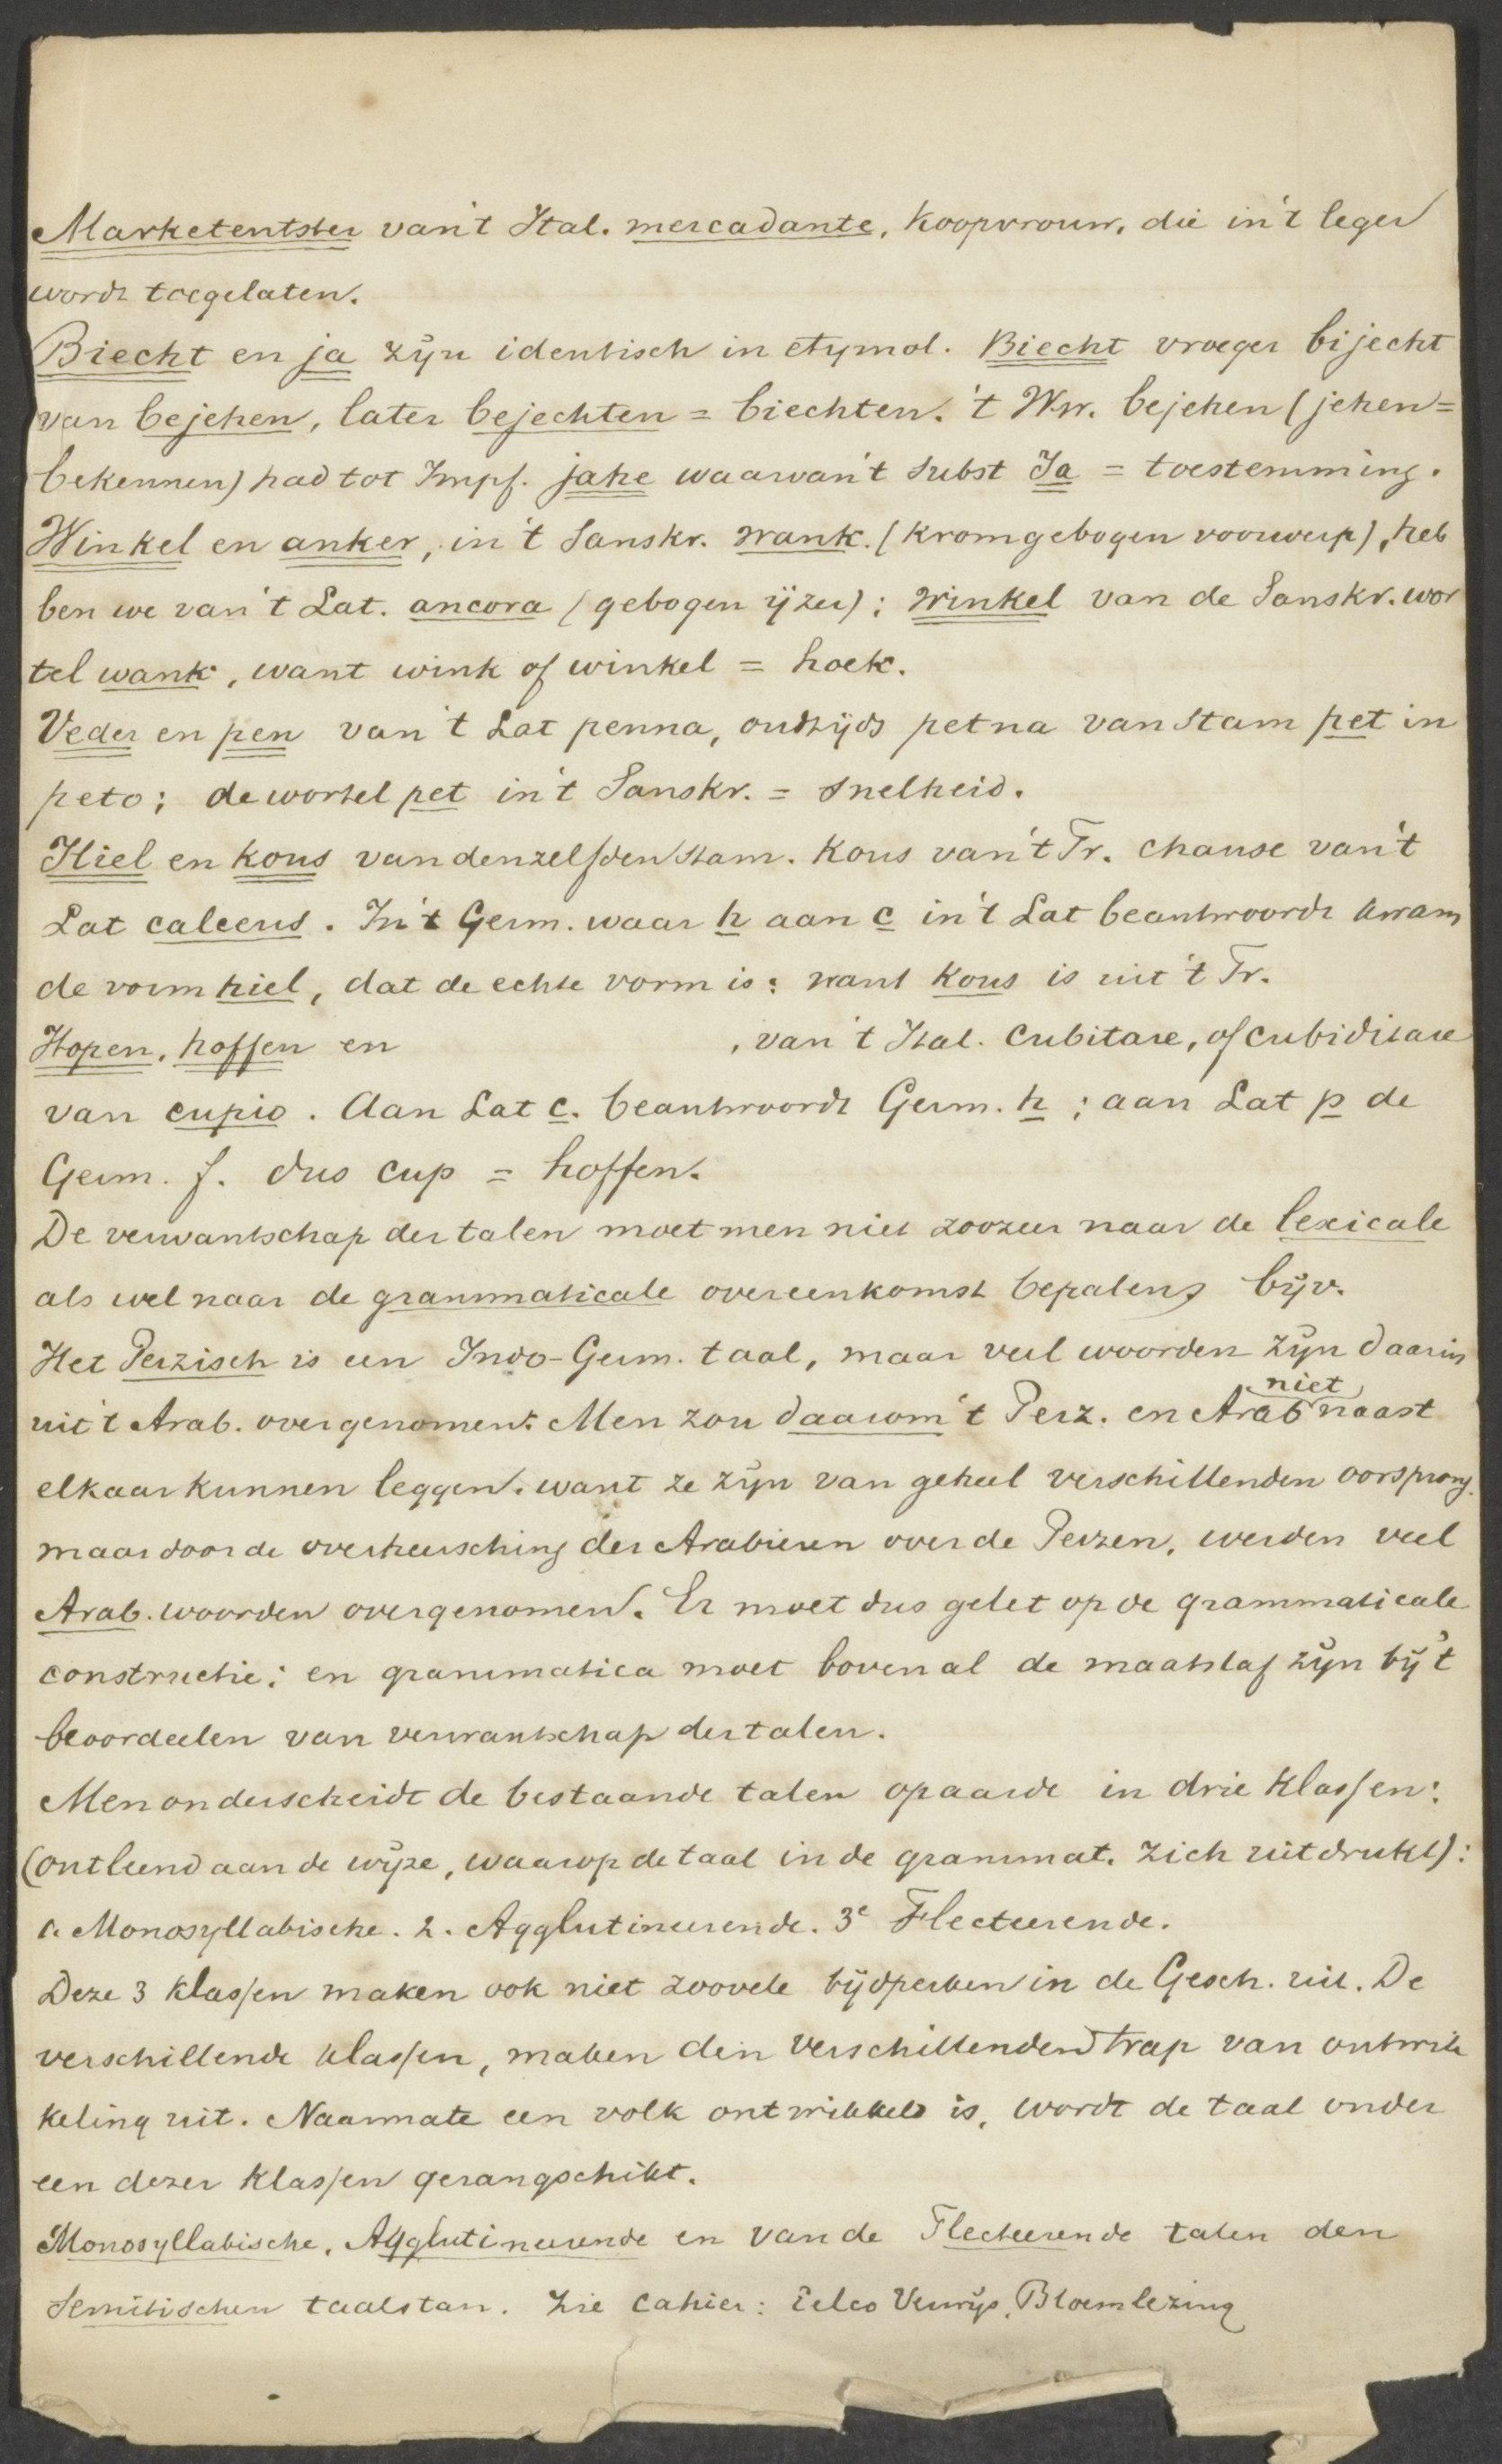 Marketentster van't Ital. mercadante, koopvrouw, die in't leger
wordt toegelaten.
Biecht en ja zijn identisch in etymol. Biecht vroeger bijecht
van bejehen, later bejechten = biechten. 't Ww. bejehen (jehen =
bekennen) had tot Impf. jahe waarvan't subst Ja = toestemming.
Winkel en anker, in't Sanskr. wank. (kromgebogen voorwerp), heb
ben we van't Lat. ancora (gebogen ijzer); winkel van de Sanskr. wor
tel wank, want wink of winkel = hoek.
Veder en pen van't Lat penna, oudtijds petna van stam pet in
peto; de wortel pet in't Sanskr. = snelheid.
Hiel en kous van denzelfden stam. Kous van't Fr. chause van't
Lat calceus. In't Germ. waar h aan c in't Lat beantwoordt kwam
de vorm hiel, dat de echte vorm is; want kous is uit 't Fr.
Hopen, hoffen en , van't Ital. cubitare, of cubiditare
van cupio. Aan Lat c. beantwoordt Germ. h; aan Lat p de
Germ. f. dus cup = hoffen.
De verwantschap der talen moet men niet zoozeer naar de lexicale
als wel naar de grammaticale overeenkomst bepalen, bijv.
Het Perzisch is een Indo-Germ. taal, maar veel woorden zijn daarin
uit 't Arab. overgenomen. Men zou daarom 't Perz. en Arab niet naast
elkaar kunnen leggen. want ze zijn van geheel verschillenden oorsprong.
maar door de overheersching der Arabieren over de Perzen, werden veel
Arab. woorden overgenomen. Er moet dus gelet op de grammaticale
constructie; en grammatica moet bovenal de maatstaf zijn bij 't
beoordeelen van verwantschap der talen.
Men onderscheidt de bestaande talen op aarde in drie klassen:
(ontleend aan de wijze, waarop de taal in de grammat. zich uitdrukt):
1. Monosyllabische. 2. Agglutineerende. 3e Flecteerende.
Deze 3 klassen maken ook niet zoovele tijdperken in de Gesch. uit. De
verschillende klassen, maken den verschillenden trap van ontwik
keling uit. Naarmate een volk ontwikkeld is, wordt de taal onder
een dezer klassen gerangschikt.
Monosyllabische, Agglutineerende en van de Flecteerende talen den
Semitischen taalstam. Zie Cahier: Eelco Verwijs, Bloemlezing